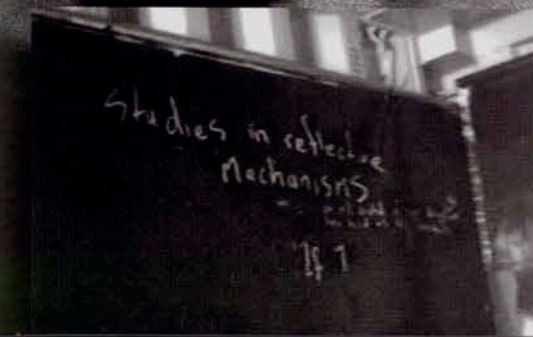 Studies in reflective
Mechanisms
"If I